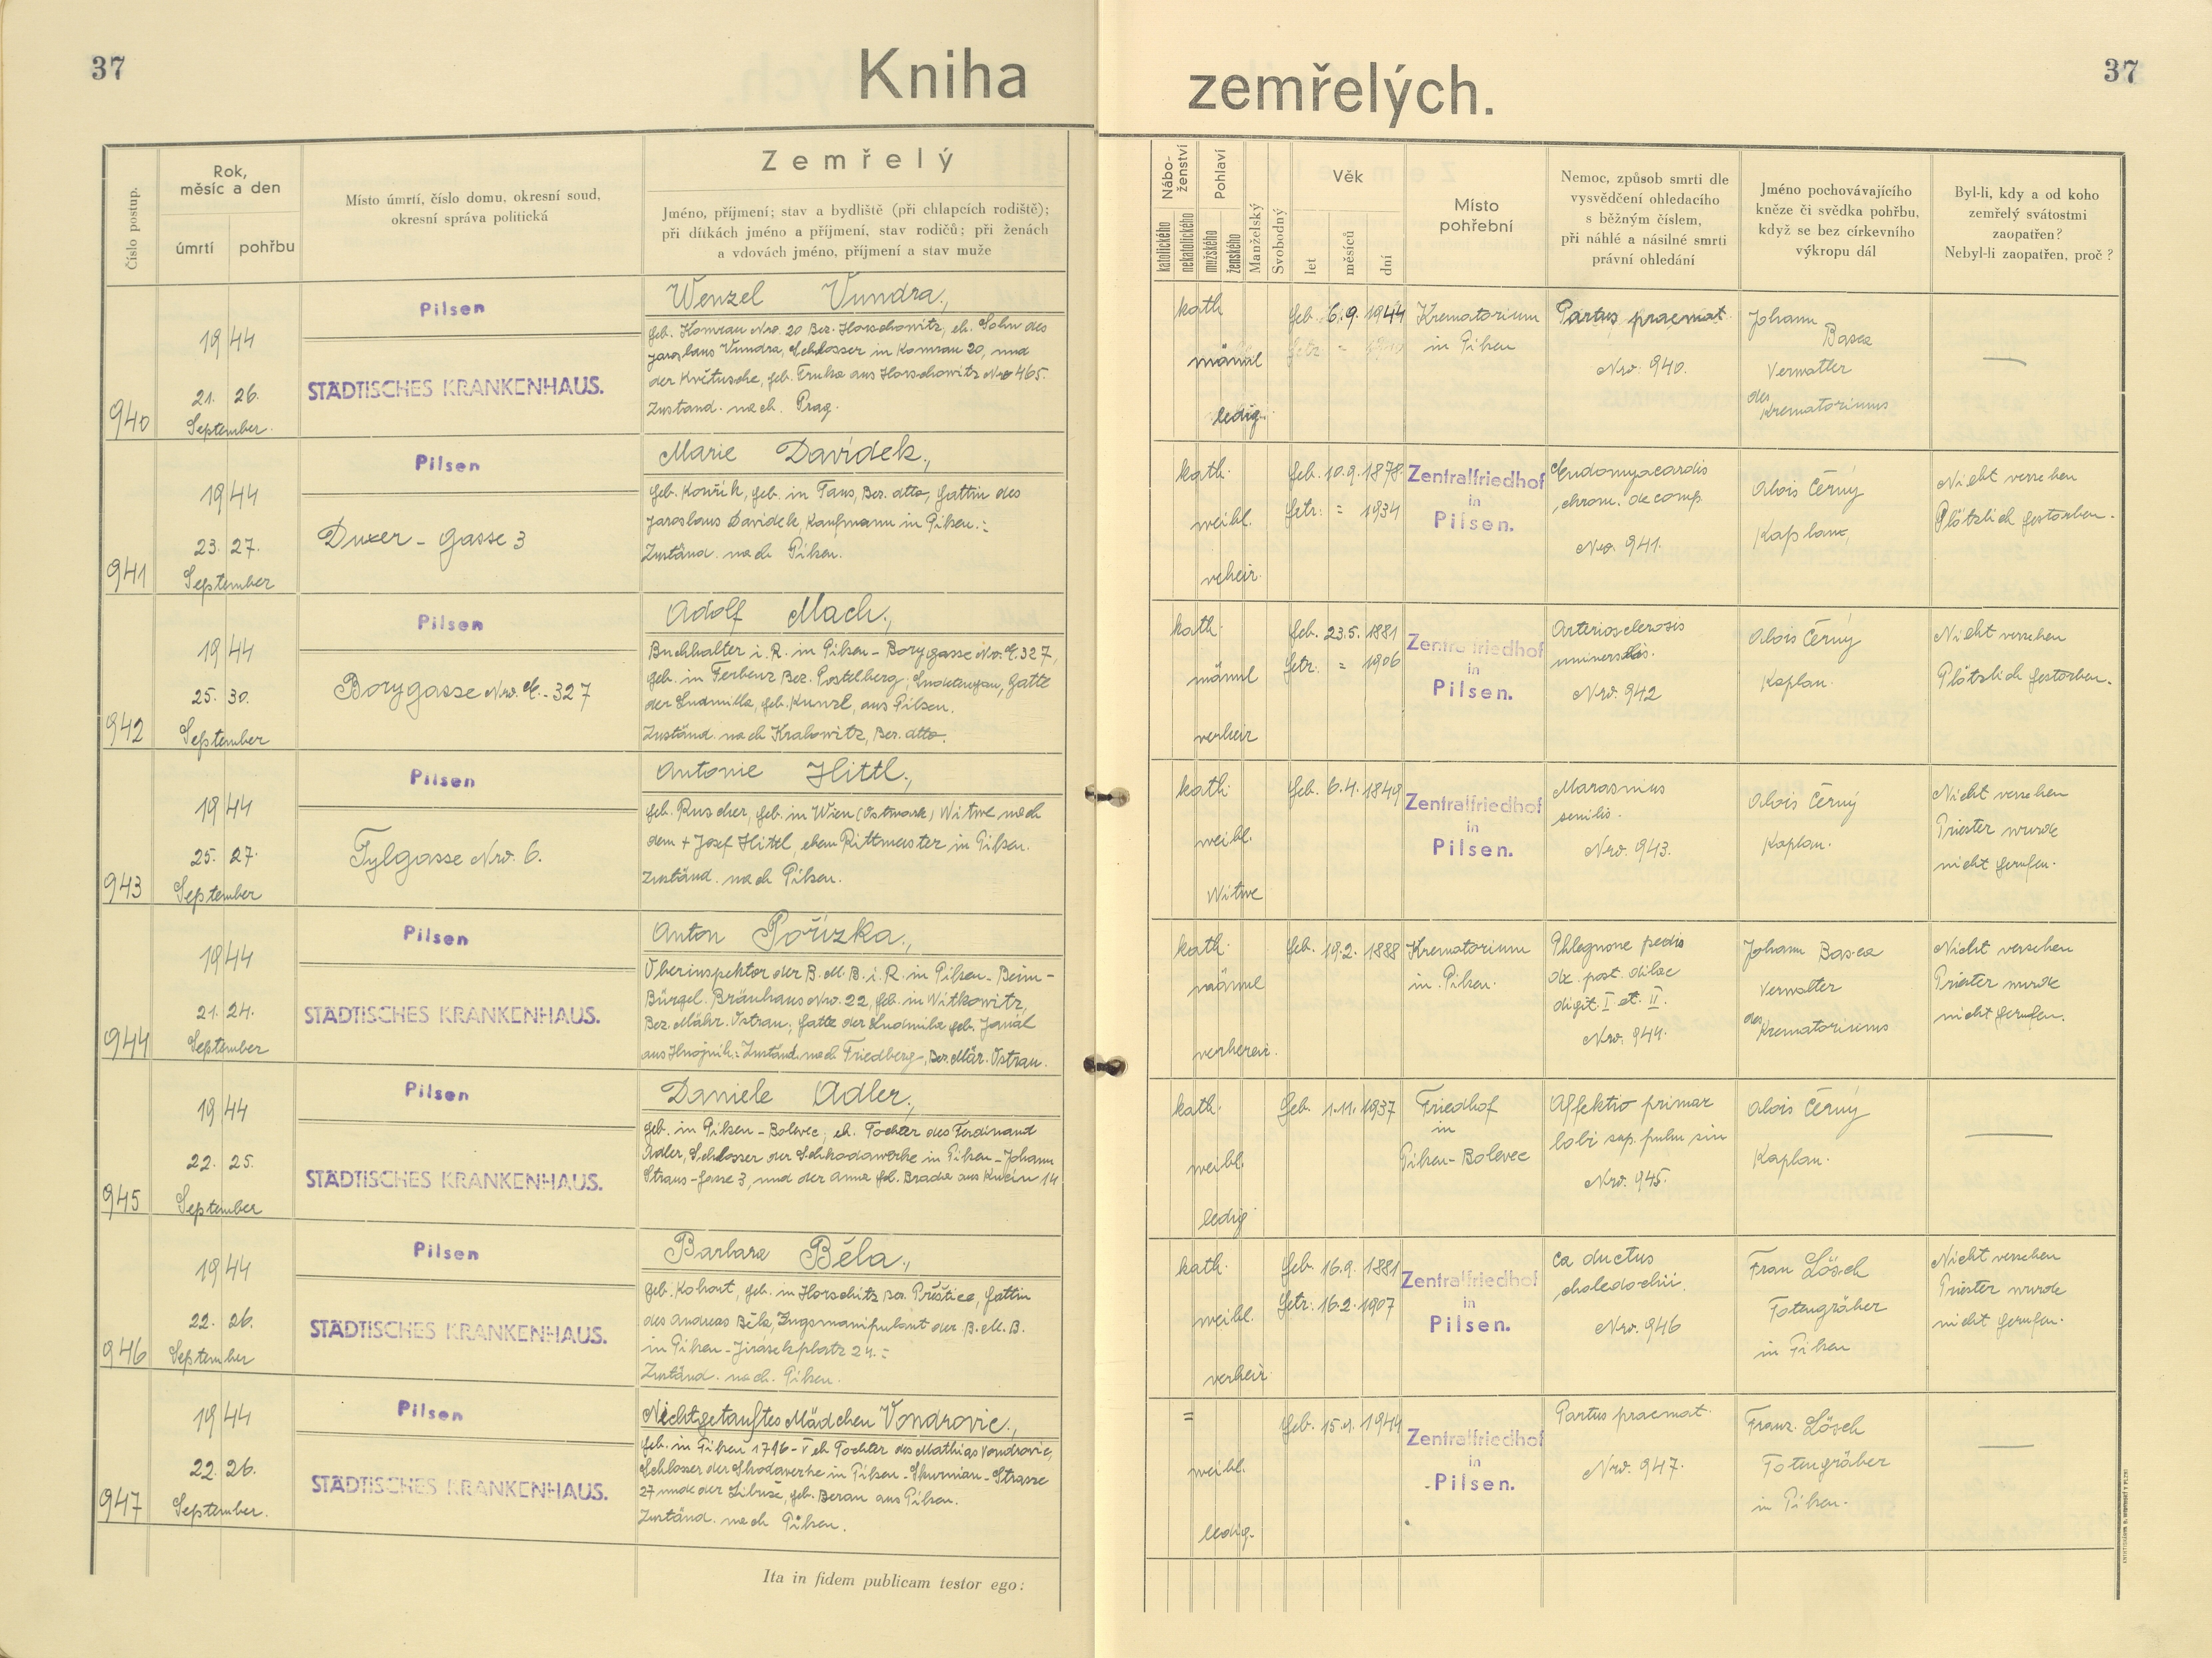 37
Kniha
zemřelých.
37
Číslo postup.
Rok,
měsíc a den
úmrtí
pohřbu
Místo úmrtí, číslo domu, okresní soud,
okresní správa politická
Zemřelý
Jméno, příjmení; stav a bydliště (při chlapcích rodiště);
při dítkách jméno a příjmení, stav rodičů; při ženách
a vdovách jméno, příjmení a stav muže
Nábo-
ženství
katolického
nekatolického
Pohlaví
mužského
ženského
Manželský
Svobodný
Věk
let
měsíců
dní
Místo
pohřební
Nemoc, způsob smrti dle
vysvědčení ohledacího
s běžným číslem,
při náhlé a násilné smrti
právní ohledání
Jméno pochovávajícího
kněze či svědka pohřbu,
když se bez církevního
výkropu dál
Byl-li, kdy a od koho
zemřelý svátostmi
zaopatřen?
Nebyl-li zaopatřen, proč?
940
1944
21. 26.
September.
Pilsen
STÄDTISCHES KRANKENHAUS.
Wenzel Vundra,
geb. Komrau Nro. 20 Bez. Horschowitz, eh. Sohn des
Jaroslaus Vundra, Schlosser in Komrau 20, und
der Květusche, geb. aus Horschowitz Nro 465.
Zustand. nach. Prag.
kath
männl
ledig.
geb. 6.9. 1944
Krematorium
in Pilsen
Partus praemat.
Nro. 940.
Johann
Basea
Verwalter
des
Krematoriums
—
941
1944
23. 27.
September
Pilsen
Duxer - Gasse 3
Marie Davídek,
geb. Kouřik, geb. in Taus, Bez. dtto, Gattin des
Jaroslaus Davídek, Kaufmann in Pilsen.:
Zuständ. nach Pilsen.
kath.
weibl.
veheir.
geb. 10.9. 1878.
getr. = 1934
Zentralfriedhof
in
Pilsen.
Endomyocardis
chron. decomp.
Nro. 941.
Alois Černý
Kaplan,
Nicht versehen
Plötzlich gestorben.
942
1944
25. 30.
September
Pilsen
Borygasse Nro. C.-327
Adolf Mach,
Buchhalter i. R. in Pilsen - Borygasse Nro. C. 327,
geb. in Ferbenz Bez. Postelberg, Sudetengau, Gatte
der Ludmilla, geb. Kunzl, aus Pilsen.
Zuständ. nach Kralowitz, Bez. dtto.
kath.
männl
verheir
geb. 23.5. 1881
getr. = 1906
Zentralfriedhof
in
Pilsen.
Arteriosclerosis
universalis.
Nro. 942
Alois Černý
Kaplan.
Nicht versehen
Plötzlich gestorben.
943
1944
25. 27.
September
Pilsen
Tylgasse Nro. 6.
Antonie Hittl,
geb. Ruscher, geb. in Wien (Ostmark) Witwe nach
dem + Josef Hittl, ehem Rittmeister in Pilsen.
Zuständ. nach Pilsen.
kath.
weibl.
Witwe
geb. 6.4. 1849
Zentralfriedhof
in
Pilsen.
Marasmus
senilis.
Nro. 943.
Alois Černý
Kaplan.
Nicht versehen
Priester wurde
nicht gerufen.
944
1944
21. 24.
September
Pilsen
STÄDTISCHES KRANKENHAUS.
Anton Pořízka,
Oberinspektor der B.M.B. i. R. in Pilsen - Beim -
Bürgel. Bräuhaus Nro. 22, geb. in Witkowitz,
Bez. Mähr. Ostrau, Gatte der Ludmila geb. Janál
aus Hnojnik: Zuständ. nach Friedberg, Bez. Mär. Ostrau.
kath.
männl
verheir.
geb. 19.2. 1888
Krematorium
in Pilsen.
Phlegnone pedis
dx. post. dilac
digit. I et. II.
Nro. 944.
Johann Basea
Verwalter
des
Krematoriums
Nicht versehen
Priester wurde
nicht gerufen.
945
1944
22. 25.
September
Pilsen
STÄDTISCHES KRANKENHAUS.
Daniele Adler,
geb. in Pilsen - Bolevec, eh. Tochter des Ferdinand
Adler, Schlosser der Schkodawerke in Pilsen - Johann
Straus-Gasse 3, und der Anna geb. Brada aus 14
kath.
weibl.
ledig
geb. 1.11. 1937
Friedhof
in
Pilsen-Bolevec
Affektio primar
lobi sup. pulm sin
Nro. 945.
Alois Černý
Kaplan.
—
946
1944
22. 26.
September
Pilsen
STÄDTISCHES KRANKENHAUS.
Barbara Běla,
geb. Kohout, geb. in Horschitz Bez. Přeštice, Gattin
des Andreas Běla, Zugsmanipulant der B.M.B.
in Pilsen - Jirásekplatz 24.=
Zuständ. nach. Pilsen.
kath.
weibl.
verheir.
geb. 16.9. 1881
getr. 16.2. 1907
Zentralfriedhof
in
Pilsen.
Ca ductus
choledochii.
Nro. 946
Franz Lösch
Totengräber
in Pilsen
Nicht versehen
Priester wurde
nicht gerufen.
947
1944
22. 26.
September.
Pilsen
STÄDTISCHES KRANKENHAUS.
Nichtgetauftes Mädchen Vondrovic,
geb. in Pilsen 1746 - V eh Tochter des Mathias Vondrovic,
Schlosser der Skodawerke in Pilsen - Skurnian - Strasse
27 und der Libuse, geb. Beran aus Pilsen.
Zuständ. nach Pilsen.
=
weibl.
ledig.
geb. 15.9. 1944
Zentralfriedhof
in
Pilsen.
Partus praemat.
Nro. 947.
Franz. Lösch
Totengräber
in Pilsen.
—
Ita in fidem publicam testor ego: